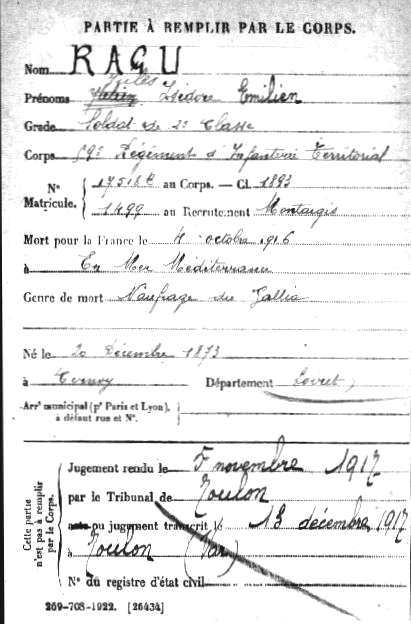 PARTIE À REMPLIR PAR LE CORPS.
Nom RAGU
Jules
Prénoms Isidore Emilien
Grade Soldat de 2e Classe
Corps 89e Régiment d'Infanterie Territorial
N° Matricule. au Corps. — Cl. 1893
1499 au Recrutement Montargis
Mort pour la France le 4 octobre 1916
à En Mer Méditerranée
Genre de mort Naufrage du Gallia
Né le 20 Décembre 1873
à Département Loiret
Arrt municipal (pr Paris et Lyon), à défaut rue et N°.
Cette partie n'est pas à remplir par le Corps.
Jugement rendu le novembre 1917
par le Tribunal de Toulon
acte ou jugement transcrit le 13 décembre 1917
à Toulon (Var)
N° du registre d'état civil
269-708-1922. [26434]